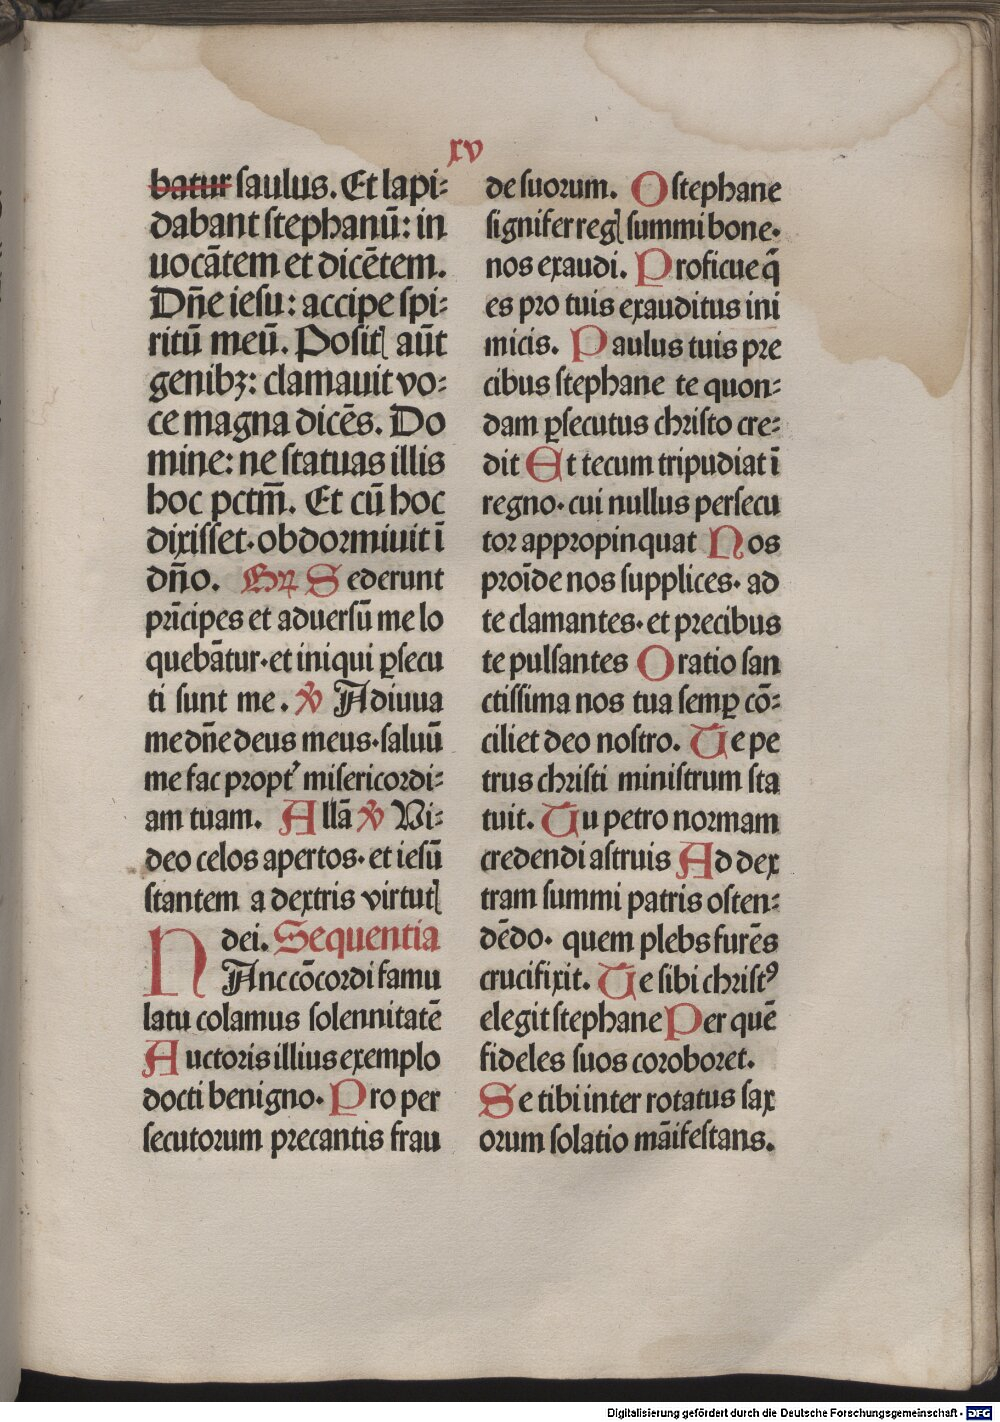 xv
batur saulus. Et lapi⸗
dabant stephanū: in
uocātem et dicētem.
Dn̄e iesu: accipe spi⸗
ritū meū. Positꝭ aūt
genibꝫ: clamauit vo⸗
ce magna dicēs. Do
mine: ne statuas illis
hoc pctm̄. Et cū hoc
dixisset·obdormiuit ī
dn̄o. Gꝛ Sederunt
prīcipes et aduersū me lo
quebātur·et iniqui ꝑsecu
ti sunt me. ℣ Adiuua
me dn̄e deus meus·saluū
me fac propt᷒ misericordi⸗
am tuam. Allā ℣ Vi⸗
deo celos apertos·et iesū
stantem a dextris virtutꝭ
dei. Sequentia
HAnc cōcordi famu
latu colamus solennitatē
Auctoris illius exemplo
docti benigno. Pro per
secutorum precantis frau
de suorum. O stephane
signifer regꝭ summi bone·
nos exaudi. Proficue q̄
es pro tuis exauditus ini
micis. Paulus tuis pre
cibus stephane te quon⸗
dam ꝑsecutus christo cre⸗
dit Et tecum tripudiat ī
regno·cui nullus persecu
tor appropinquat Nos
proīde nos supplices·ad
te clamantes·et precibus
te pulsantes Oratio san
ctissima nos tua semꝑ cō⸗
ciliet deo nostro. Te pe
trus christi ministrum sta
tuit. Tu petro normam
credendi astruis Ad dex
tram summi patris osten⸗
dēdo· quem plebs furēs
crucifixit. Te sibi christꝰ
elegit stephane Per quē
fideles suos coroboret.
Se tibi inter rotatus sax
orum solatio māifestans.
Digitalisierung gefördert durch die Deutsche Forschungsgemeinschaft - DFG